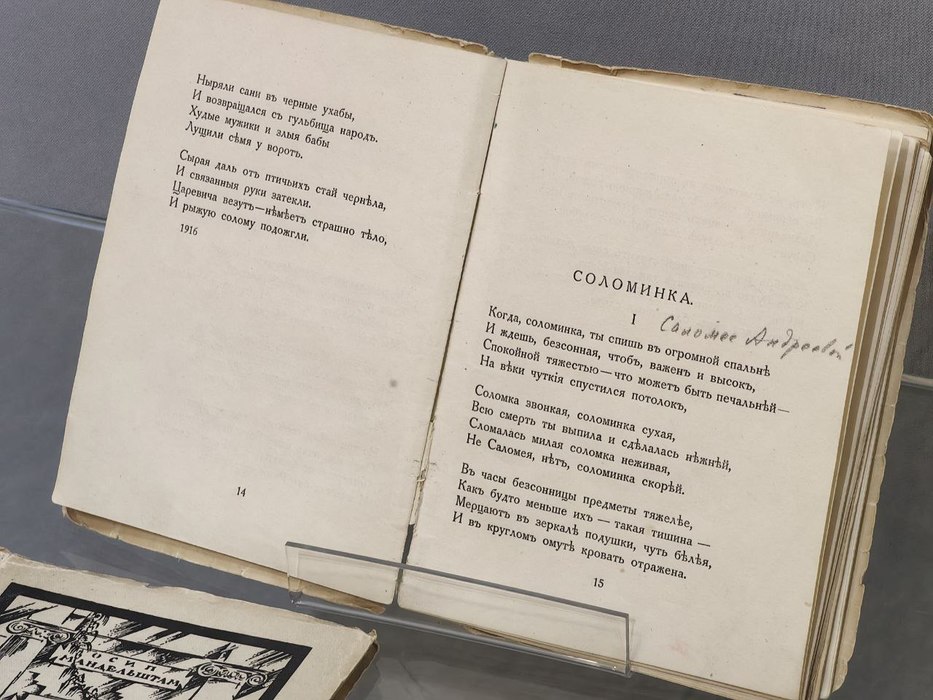 Ныряли сани въ черные ухабы,
И возвращался съ гульбища народъ.
Худые мужики и злыя бабы
Лущили сѣмя у воротъ.
Сырая даль отъ птичьихъ стай чернѣла,
И связанныя руки затекли.
Царевича везутъ—нѣмѣетъ страшно тѣло,
И рыжую солому подожгли.
1916
14
СОЛОМИНКА.
I Саломее Андреевой
Когда, соломинка, ты спишь въ огромной спальнѣ
И ждешь, безсонная, чтобъ, важенъ и высокъ,
Спокойной тяжестью—что можетъ быть печальнѣй—
На вѣки чуткія спустился потолокъ,
Соломка звонкая, соломинка сухая,
Всю смерть ты выпила и сдѣлалась нѣжнѣй,
Сломалась милая соломка неживая,
Не Саломея, нѣтъ, соломинка скорѣй.
Въ часы безсонницы предметы тяжелѣе,
Какъ будто меньше ихъ — такая тишина —
Мерцаютъ въ зеркалѣ подушки, чуть бѣлѣя,
И въ кругломъ омутѣ кровать отражена.
15
ОСИП
МАНДЕЛЬШТАМ